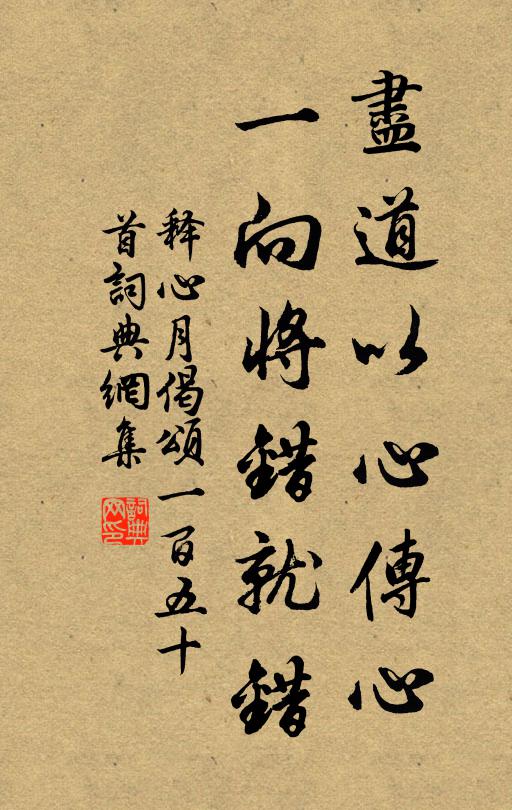 盡道以心傳心
一向將錯就錯
释心月偈頌一百五十
首詞典網集
詞典网印